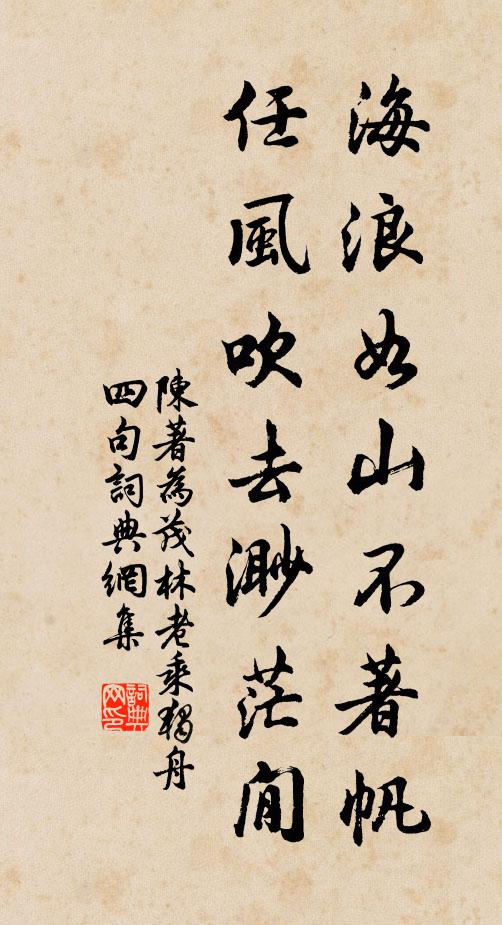 海浪如山不著帆
任風吹去渺茫間
陳著為茂林老乘獨舟
四句詞典網集
詞典網印